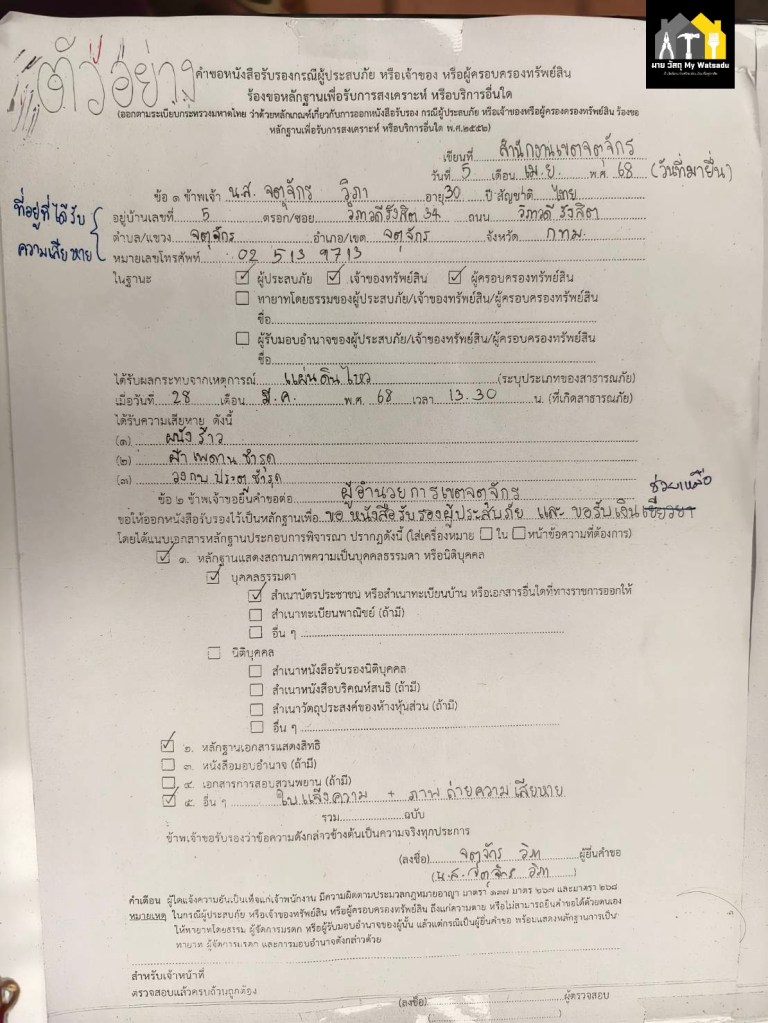 มาย วัสดุ My Watsadu
ตัวอย่าง
คำขอหนังสือรับรองกรณีผู้ประสบภัย หรือเจ้าของ หรือผู้ครอบครองทรัพย์สิน
ร้องขอหลักฐานเพื่อรับการสงเคราะห์ หรือบริการอื่นใด
(ออกตามระเบียบกระทรวงมหาดไทย ว่าด้วยหลักเกณฑ์เกี่ยวกับการออกหนังสือรับรอง กรณีผู้ประสบภัย หรือเจ้าของหรือผู้ครอบครองทรัพย์สิน ร้องขอ
หลักฐานเพื่อรับการสงเคราะห์ หรือบริการอื่นใด พ.ศ.๒๕๕๒)
เขียนที่ สำนักงานเขตจตุจักร
วันที่ 5 เดือน เม.ย. พ.ศ. 68 (วันที่มายื่น)
ข้อ ๑ ข้าพเจ้า น.ส. จตุจักร วิภา อายุ 30 ปี สัญชาติ ไทย
ที่อยู่ที่ได้รับ
ความเสียหาย
อยู่บ้านเลขที่ 5 ตรอก/ซอย วิภาวดีรังสิต 34 ถนน วิภาวดีรังสิต
ตำบล/แขวง จตุจักร อำเภอ/เขต จตุจักร จังหวัด กทม.
หมายเลขโทรศัพท์ 02 513 9713
ในฐานะ ☑ ผู้ประสบภัย ☑ เจ้าของทรัพย์สิน ☑ ผู้ครอบครองทรัพย์สิน
☐ ทายาทโดยธรรมของผู้ประสบภัย/เจ้าของทรัพย์สิน/ผู้ครอบครองทรัพย์สิน
ชื่อ
☐ ผู้รับมอบอำนาจของผู้ประสบภัย/เจ้าของทรัพย์สิน/ผู้ครอบครองทรัพย์สิน
ชื่อ
ได้รับผลกระทบจากเหตุการณ์ แผ่นดินไหว (ระบุประเภทของสาธารณภัย)
เมื่อวันที่ 28 เดือน มี.ค. พ.ศ. 68 เวลา 13.30 น. (ที่เกิดสาธารณภัย)
ได้รับความเสียหาย ดังนี้
(๑) ผนังร้าว
(๒) ฝ้าเพดานชำรุด
(๓) วงกบประตูชำรุด
ข้อ ๒ ข้าพเจ้าขอยื่นคำขอต่อ ผู้อำนวยการเขตจตุจักร ช่วยเหลือ
ขอให้ออกหนังสือรับรองไว้เป็นหลักฐานเพื่อ ขอหนังสือรับรองผู้ประสบภัย และ ขอรับเงินเยียวยา
โดยได้แนบเอกสารหลักฐานประกอบการพิจารณา ปรากฏดังนี้ (ใส่เครื่องหมาย ☐ ใน ☐ หน้าข้อความที่ต้องการ)
☑ ๑. หลักฐานแสดงสถานภาพความเป็นบุคคลธรรมดา หรือนิติบุคคล
☑ บุคคลธรรมดา
☑ สำเนาบัตรประชาชน หรือสำเนาทะเบียนบ้าน หรือเอกสารอื่นใดที่ทางราชการออกให้
☐ สำเนาทะเบียนพาณิชย์ (ถ้ามี)
☐ อื่น ๆ
☐ นิติบุคคล
☐ สำเนาหนังสือรับรองนิติบุคคล
☐ สำเนาหนังสือบริคณห์สนธิ (ถ้ามี)
☐ สำเนาวัตถุประสงค์ของห้างหุ้นส่วน (ถ้ามี)
☐ อื่น ๆ
☑ ๒. หลักฐานเอกสารแสดงสิทธิ
☐ ๓. หนังสือมอบอำนาจ (ถ้ามี)
☐ ๔. เอกสารการสอบสวนพยาน (ถ้ามี)
☑ ๕. อื่น ๆ ใบแจ้งความ + ภาพถ่ายความเสียหาย
รวม ฉบับ
ข้าพเจ้าขอรับรองว่าข้อความดังกล่าวข้างต้นเป็นความจริงทุกประการ
(ลงชื่อ) จตุจักร วิภา ผู้ยื่นคำขอ
(น.ส. จตุจักร วิภา)
คำเตือน ผู้ใดแจ้งความอันเป็นเท็จแก่เจ้าพนักงาน มีความผิดตามประมวลกฎหมายอาญา มาตรา ๑๓๗ มาตรา ๒๖๗ และมาตรา ๒๖๘
หมายเหตุ ในกรณีผู้ประสบภัย หรือเจ้าของทรัพย์สิน หรือผู้ครอบครองทรัพย์สิน ถึงแก่ความตาย หรือไม่สามารถยื่นคำขอได้ด้วยตนเอง
ให้ทายาทโดยธรรม ผู้จัดการมรดก หรือผู้รับมอบอำนาจของผู้นั้น แล้วแต่กรณีเป็นผู้ยื่นคำขอ พร้อมแสดงหลักฐานการเป็น
ทายาท ผู้จัดการมรดก และการมอบอำนาจดังกล่าวด้วย
สำหรับเจ้าหน้าที่
ตรวจสอบแล้วครบถ้วนถูกต้อง
(ลงชื่อ) ผู้ตรวจสอบ